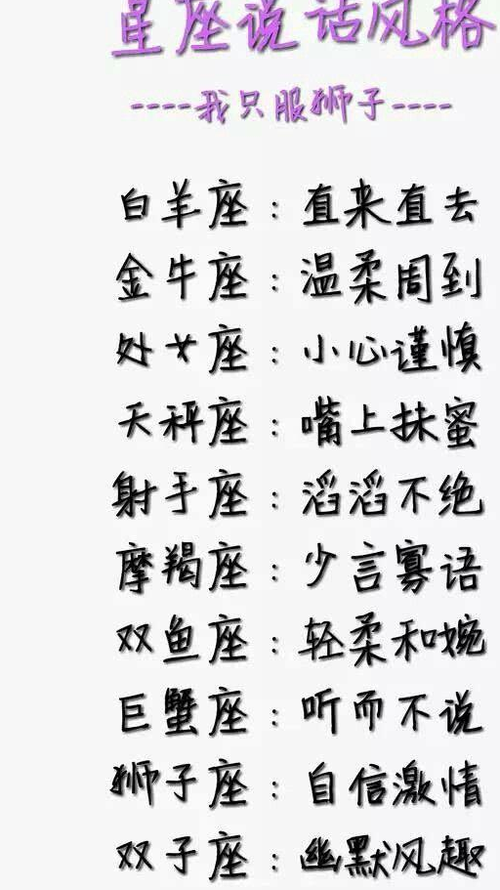 星座说话风格
----我只服狮子----
白羊座：直来直去
金牛座：温柔周到
处女座：小心谨慎
天秤座：嘴上抹蜜
射手座：滔滔不绝
摩羯座：少言寡语
双鱼座：轻柔和婉
巨蟹座：听而不说
狮子座：自信激情
双子座：幽默风趣